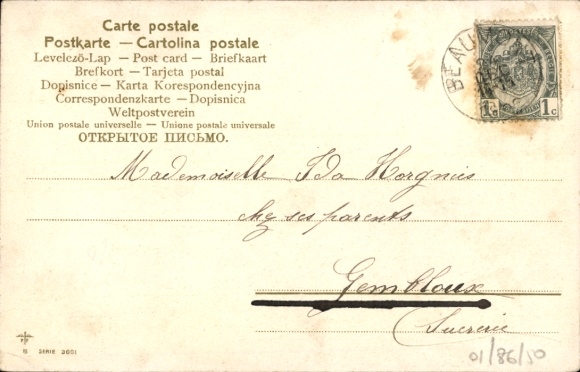 Carte postale
Postkarte — Cartolina postale
Levelező-Lap — Post card — Briefkaart
Brefkort — Tarjeta postal
Dopisnice — Karta Korespondencyjna
Correspondenzkarte — Dopisnica
Weltpostverein
Union postale universelle — Unione postale universale
ОТКРЫТОЕ ПИСЬМО.
BEAU
1c 1c
Mademoiselle Ida Horgnies
chez ses parents
Gembloux
(Sucrerie
B SERIE 3651
01/86/50